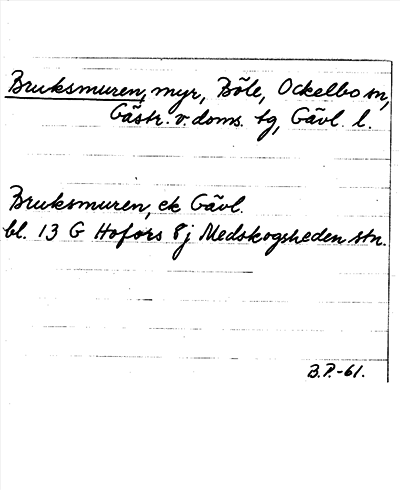 Bruksmuren, myr, Böle, Ockelbo sn,
Gästr. v. doms. tg, Gävl. l.
Bruksmuren, ek Gävl.
bl. 13 G Hofors 8j Medskogsheden stn.
B.P.-61.